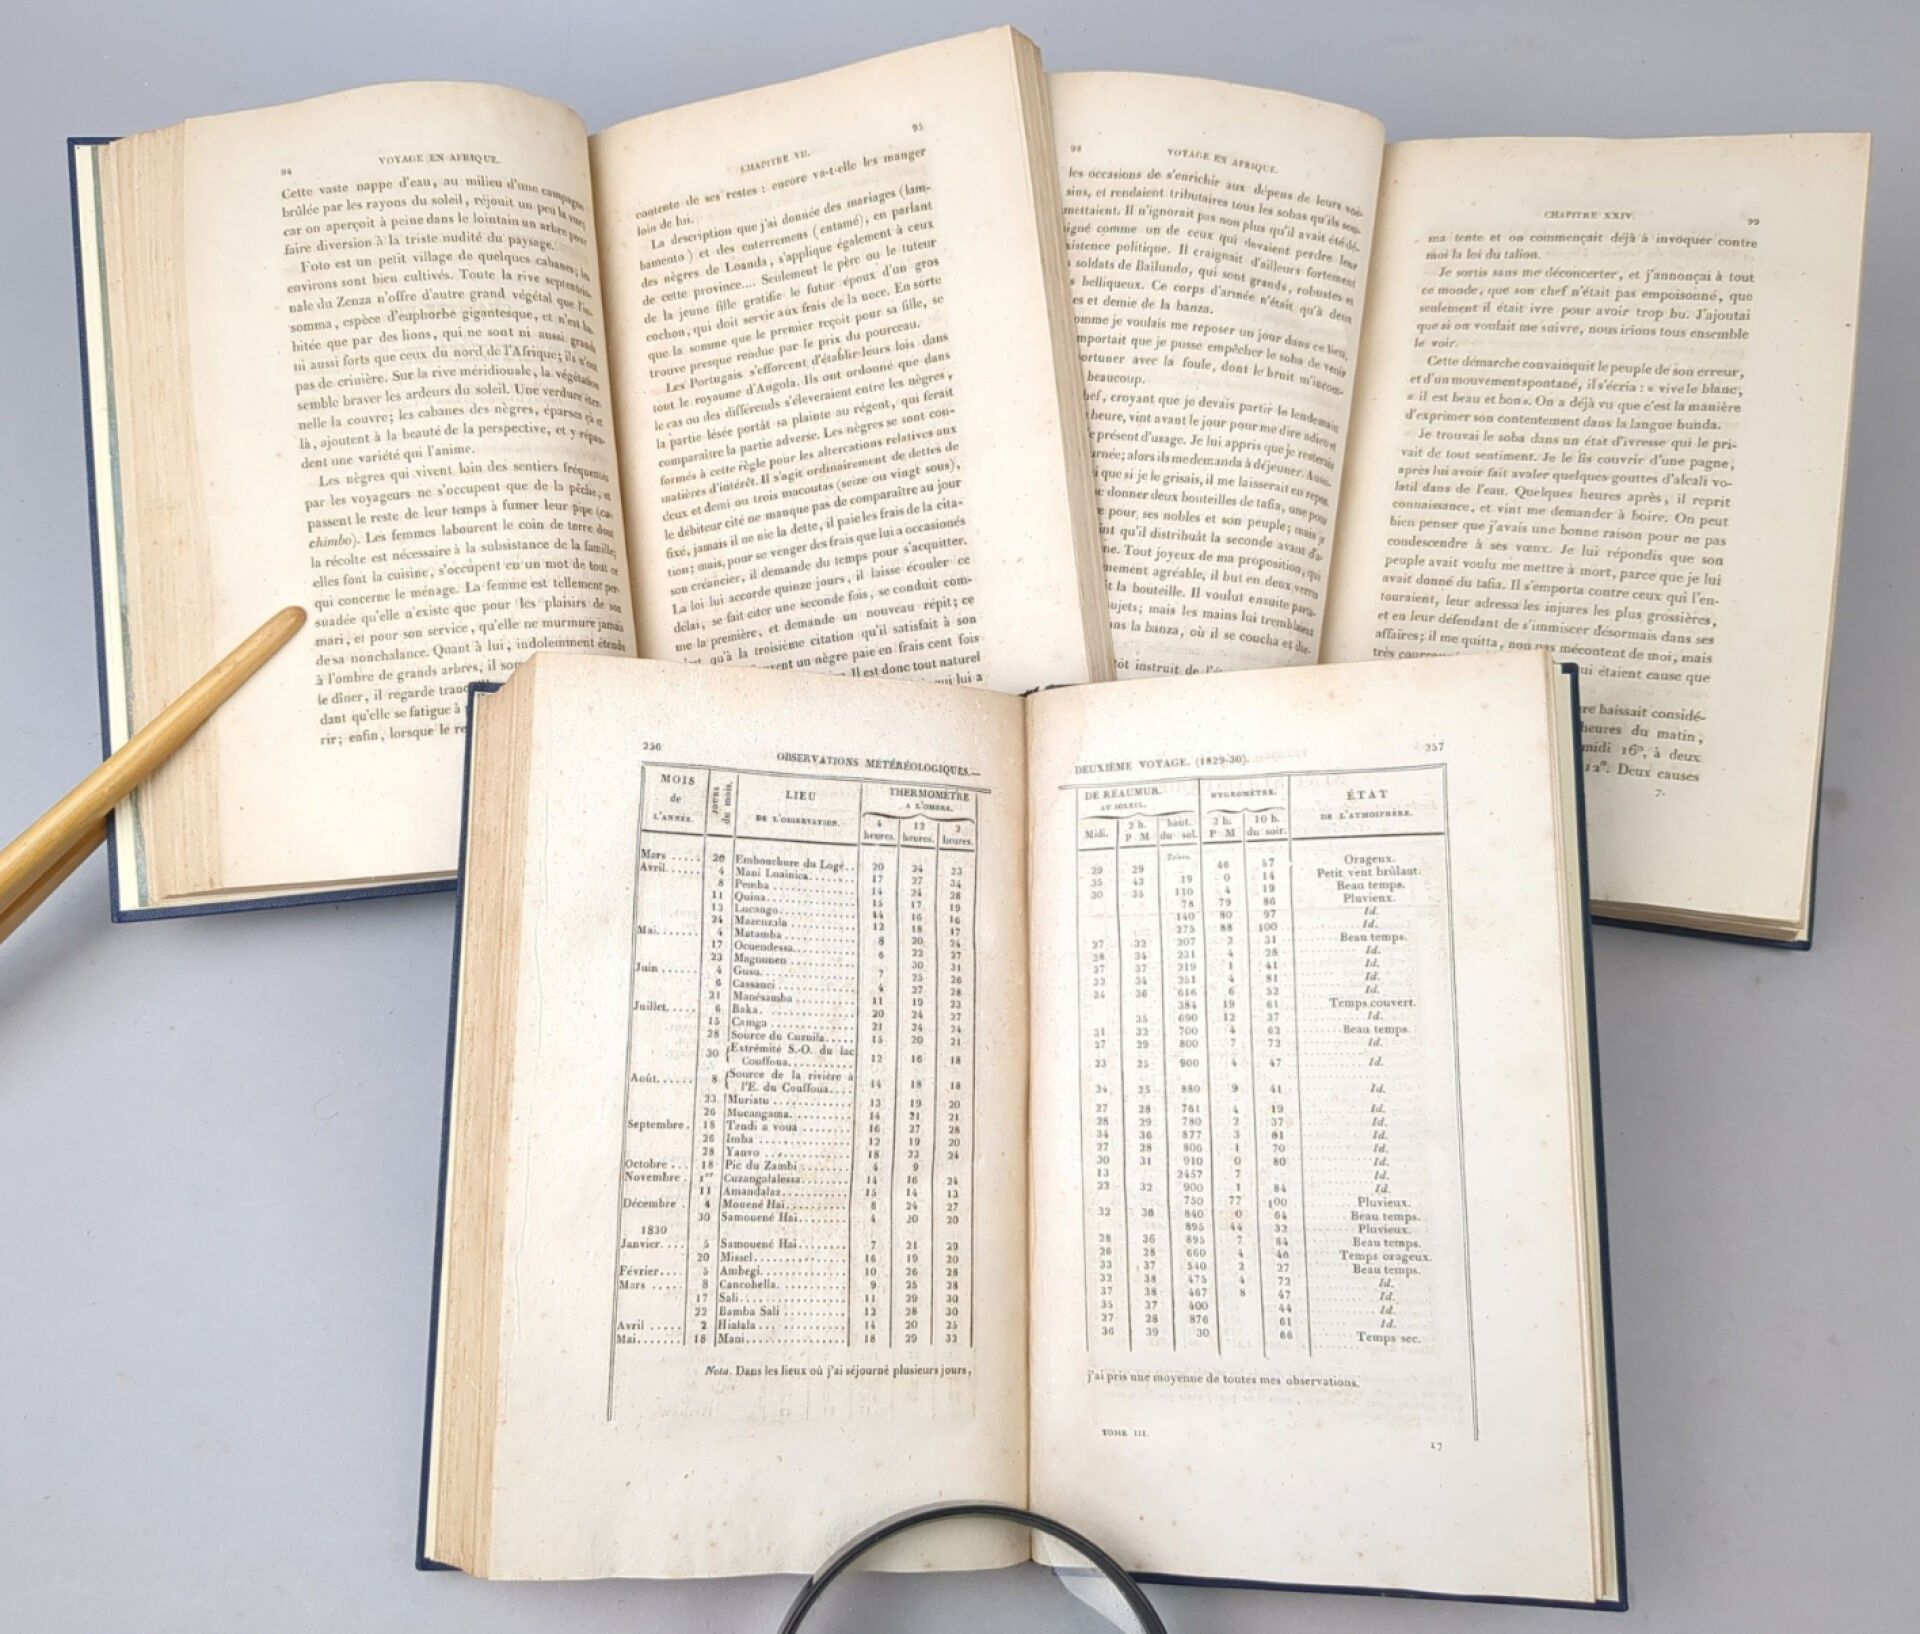 94
VOYAGE EN AFRIQUE.
Cette vaste nappe d'eau, au milieu d'une campagne
brûlée par les rayons du soleil, réjouit un peu la vue,
car on aperçoit à peine dans le lointain un arbre pour
faire diversion à la triste nudité du paysage.
Foto est un petit village de quelques cabanes; les
environs sont bien cultivés. Toute la rive septentrio-
nale du Zenza n'offre d'autre grand végétal que l'in-
somma, espèce d'euphorbe gigantesque, et n'est ha-
bitée que par des lions, qui ne sont ni aussi grands
ni aussi forts que ceux du nord de l'Afrique; ils n'ont
pas de crinière. Sur la rive méridionale, la végétation
semble braver les ardeurs du soleil. Une verdure éter-
nelle la couvre; les cabanes des nègres, éparses çà et
là, ajoutent à la beauté de la perspective, et y répan-
dent une variété qui l'anime.
Les nègres qui vivent loin des sentiers fréquentés
par les voyageurs ne s'occupent que de la pêche, et
passent le reste de leur temps à fumer leur pipe (ca-
chimbo). Les femmes labourent le coin de terre dont
la récolte est nécessaire à la subsistance de la famille;
elles font la cuisine, s'occupent en un mot de tout ce
qui concerne le ménage. La femme est tellement per-
suadée qu'elle n'existe que pour les plaisirs de son
mari, et pour son service, qu'elle ne murmure jamais
de sa nonchalance. Quant à lui, indolemment étendu
à l'ombre de grands arbres, il
le dîner, il regarde
dant qu'elle se fatigue à
rir; enfin, lorsque le
CHAPITRE VII.
95
contente de ses restes : encore va-t-elle les manger
loin de lui.
La description que j'ai donnée des mariages (lam-
bamento) et des enterremens (entamé), en parlant
des nègres de Loanda, s'applique également à ceux
de cette province.... Seulement le père ou le tuteur
de la jeune fille gratifie le futur époux d'un gros
cochon, qui doit servir aux frais de la noce. En sorte
que la somme que le premier reçoit pour sa fille, se
trouve presque rendue par le prix du pourceau.
Les Portugais s'efforcent d'établir leurs lois dans
tout le royaume d'Angola. Ils ont ordonné que dans
le cas où des différends s'éleveraient entre les nègres,
la partie lésée portât sa plainte au régent, qui ferait
comparaître la partie adverse. Les nègres se sont con-
formés à cette règle pour les altercations relatives aux
matières d'intérêt. Il s'agit ordinairement de dettes de
deux et demi ou trois macoutas (seize ou vingt sous),
le débiteur cité ne manque pas de comparaître au jour
fixé, jamais il ne nie la dette, il paie les frais de la cita-
tion; mais, pour se venger des frais que lui a occasionés
son créancier, il demande du temps pour s'acquitter.
La loi lui accorde quinze jours, il laisse écouler ce
délai, se fait citer une seconde fois, se conduit com-
me la première, et demande un nouveau répit; ce
qu'à la troisième citation qu'il satisfait à son
un nègre paie en frais cent fois
Il est donc tout naturel
qui lui a
98
VOYAGE EN AFRIQUE.
les occasions de s'enrichir aux dépens de leurs voi-
sins, et rendaient tributaires tous les sobas qu'ils sou-
mettaient. Il n'ignorait pas non plus qu'il avait été dé-
signé comme un de ceux qui devaient perdre leur
existence politique. Il craignait d'ailleurs fortement
soldats de Bailundo, qui sont grands, robustes et
belliqueux. Ce corps d'armée n'était qu'à deux
es et demie de la banza.
omme je voulais me reposer un jour dans ce lieu,
mportait que je pusse empêcher le soba de venir
ortuner avec la foule, dont le bruit m'incom-
beaucoup.
hef, croyant que je devais partir le lendemain
heure, vint avant le jour pour me dire adieu et
e présent d'usage. Je lui appris que je resterais
rnée; alors il me demanda à déjeuner.
que si je le grisais, il me laisserait en repos
donner deux bouteilles de tafia, une pour
pour ses nobles et son peuple; mais je
int qu'il distribuât la seconde avant d'a-
ne. Tout joyeux de ma proposition, qui
mement agréable, il but en deux verres
t la bouteille. Il voulut ensuite parta-
sujets; mais les mains lui tremblaient
ns la banza, où il se coucha et dor-
tôt instruit de
CHAPITRE XXIV.
99
ma tente et on commençait déjà à invoquer contre
moi la loi du talion.
Je sortis sans me déconcerter, et j'annonçai à tout
ce monde, que son chef n'était pas empoisonné, que
seulement il était ivre pour avoir trop bu. J'ajoutai
que si on voulait me suivre, nous irions tous ensemble
le voir.
Cette démarche convainquit le peuple de son erreur,
et d'un mouvement spontané, il s'écria : « vive le blanc,
« il est beau et bon ». On a déjà vu que c'est la manière
d'exprimer son contentement dans la langue bunda.
Je trouvai le soba dans un état d'ivresse qui le pri-
vait de tout sentiment. Je le fis couvrir d'une pagne,
après lui avoir fait avaler quelques gouttes d'alcali vo-
latil dans de l'eau. Quelques heures après, il reprit
connaissance, et vint me demander à boire. On peut
bien penser que j'avais une bonne raison pour ne pas
condescendre à ses vœux. Je lui répondis que son
peuple avait voulu me mettre à mort, parce que je lui
avait donné du tafia. Il s'emporta contre ceux qui l'en-
touraient, leur adressa les injures les plus grossières,
et en leur défendant de s'immiscer désormais dans ses
affaires; il me quitta, non pas mécontent de moi, mais
très ui étaient cause que
re baissait considé-
heures du matin,
midi 16°, à deux
12°. Deux causes
7.
256
OBSERVATIONS MÉTÉREOLOGIQUES.—
MOIS de L'ANNÉE. JOURS du mois. LIEU DE L'OBSERVATION. THERMOMÈTRE A L'OMBRE.
4 heures. 12 heures. 2 heures.
Mars ..... 26 Embouchure du Logé.. 20 24 23
Avril...... 4 Mani Luainica........ 17 27 34
8 Pemba ............ 14 24 28
11 Quina............ 15 17 19
13 Lucango........... 14 16 16
24 Mazenzala ......... 12 18 17
Mai....... 4 Matamba .......... 8 20 24
17 Ocuendessa......... 6 22 27
23 Magounen ......... 30 31
Juin ...... 4 Gusu............. 7 25 26
6 Cassanci .......... 4 27 28
21 Manésamba ........ 11 19 23
Juillet..... 6 Baka............. 20 24 27
15 Camga ........... 21 24 24
28 Source du Cuzuila..... 15 20 21
30 Extrémité S.-O. du lac
Couffoua.......... 12 16 18
Août...... 8 Source de la rivière à
l'E. du Couffoua.... 14 18 18
23 Muriatu .......... 13 19 20
26 Mucangama......... 14 21 21
Septembre. 18 Tandi a voua ........ 16 27 28
26 Imba ............ 12 19 20
28 Yanvo ........... 18 23 24
Octobre ... 18 Pic du Zambi ....... 4 9
Novembre . 1er Cuzangalalessa....... 14 16 24
11 Amandalaz......... 15 14 13
Décembre . 4 Mouené Hai........ 6 24 27
30 Samouené Hai....... 4 20 20
1830
Janvier.... 5 Samouené Hai....... 7 21 29
20 Missel........... 16 19 20
Février... 5 Ambegi........... 10 26 28
Mars ..... 8 Cancobella......... 9 25 28
17 Sali............. 11 29 30
22 Bamba Sali ........ 12 28 30
Avril ..... 2 Hialala........... 14 20 25
Mai....... 18 Mani............ 18 29 32
Nota. Dans les lieux où j'ai séjourné plusieurs jours,
DEUXIÈME VOYAGE. (1829-30).
257
DE RÉAUMUR. AU SOLEIL. HYGROMÈTRE. ÉTAT DE L'ATMOSPHÈRE.
Midi. 2 h. P M haut. du sol. 2 h. P M 10 h. du soir.
Toises.
29 29 46 57 Orageux.
35 43 19 0 14 Petit vent brûlant.
30 35 110 4 19 Beau temps.
78 79 86 Pluvieux.
140 80 97 Id.
275 88 100 Id.
27 32 207 2 31 Beau temps.
28 34 231 4 28 Id.
37 37 219 1 41 Id.
32 34 251 4 81 Id.
34 36 616 6 52 Id.
384 19 61 Temps couvert.
35 690 12 37 Id.
31 32 700 4 62 Beau temps.
27 29 800 7 72 Id.
23 25 900 4 47 Id.
24 25 880 9 41 Id.
27 28 761 4 19 Id.
28 29 780 2 37 Id.
34 36 877 3 61 Id.
27 28 806 1 70 Id.
30 31 910 0 80 Id.
13 2457 7 Id.
22 32 900 1 84 Id.
750 77 100 Pluvieux.
32 36 840 0 64 Beau temps.
895 44 32 Pluvieux.
28 36 895 7 84 Beau temps.
26 28 660 4 46 Temps orageux.
33 37 540 2 27 Beau temps.
32 38 475 4 72 Id.
37 38 467 8 47 Id.
35 37 400 44 Id.
27 28 876 61 Id.
36 39 30 66 Temps sec.
j'ai pris une moyenne de toutes mes observations.
TOME III.
17